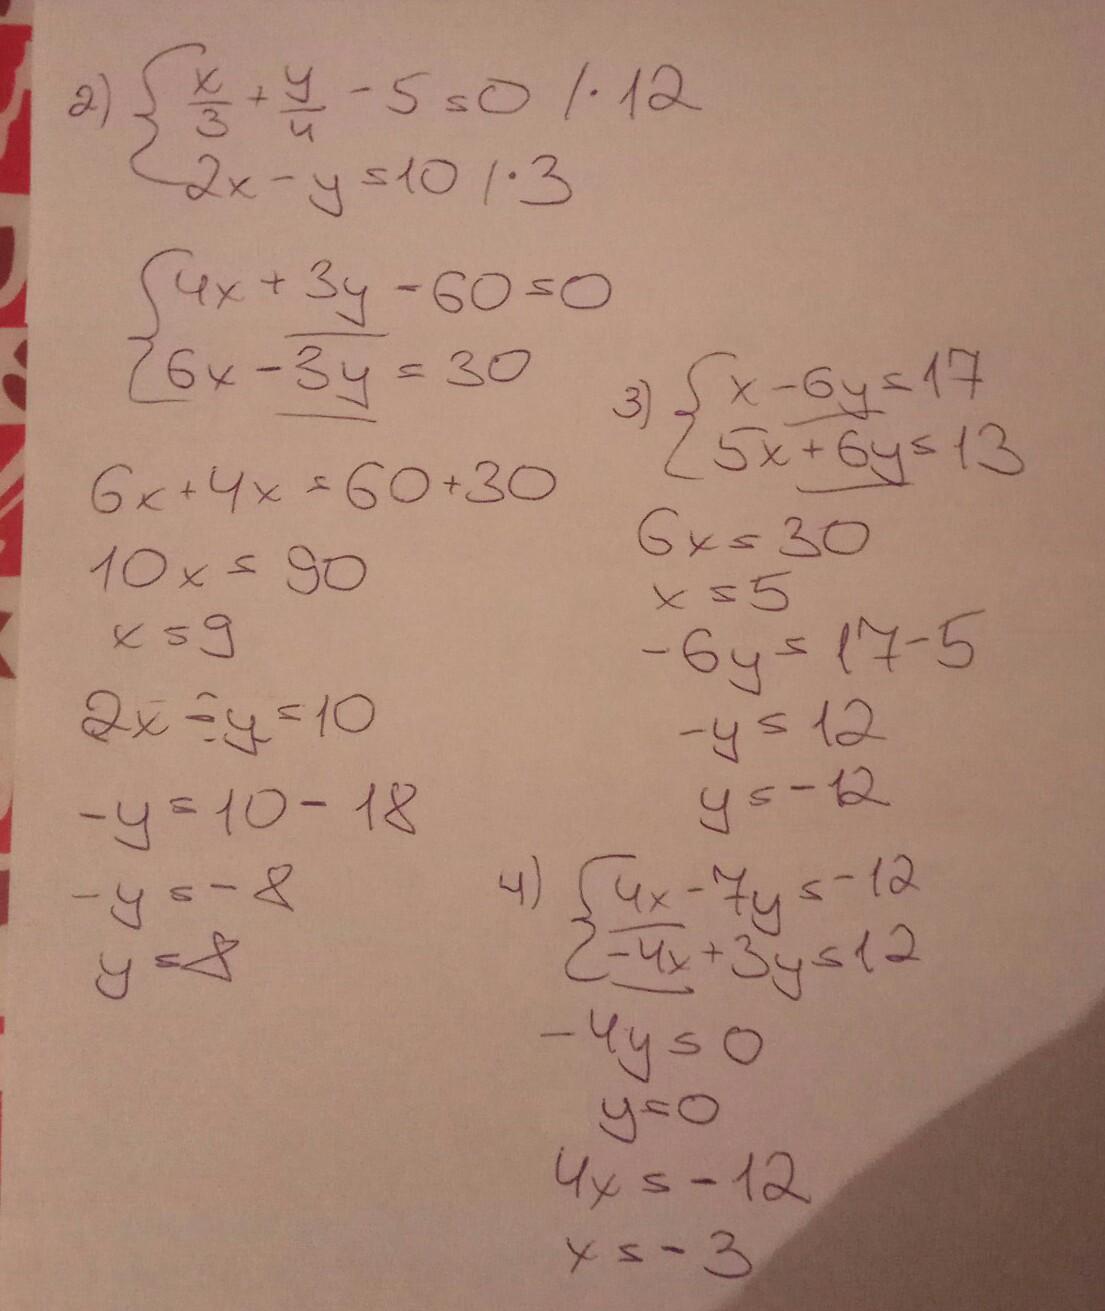 2) { x/3 + y/4 - 5 = 0 /·12
2x - y = 10 /·3
{ 4x + 3y - 60 = 0
6x - 3y = 30
6x + 4x = 60 + 30
10x = 90
x = 9
2x - y = 10
-y = 10 - 18
-y = -8
y = 8
3) { x - 6y = 17
5x + 6y = 13
6x = 30
x = 5
-6y = 17 - 5
-y = 12
y = -12
4) { 4x - 7y = -12
-4x + 3y = 12
-4y = 0
y = 0
4x = -12
x = -3